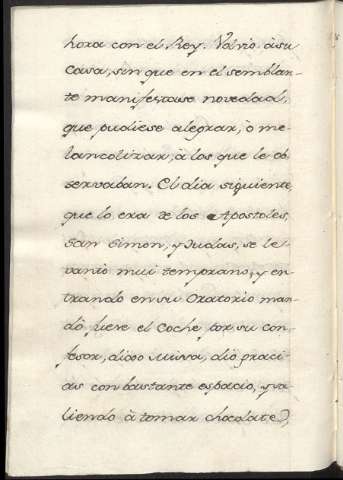 hora con el Rey. Volvio à su
Casa, sin que en el semblan-
te manifestase novedad,
que pudiese alegrar, ò me-
lancolizar, à los que le ob-
servaban. El dia siguiente,
que lo era de los Apostoles,
San Simon, y Judas, se le-
vanto mui temprano, y en-
trando en su Oratorio man-
dò fuese el Coche por su con-
fesor, dixo Missa, diò graci-
as con bastante espacio, y sa-
liendo à tomar chocolate,